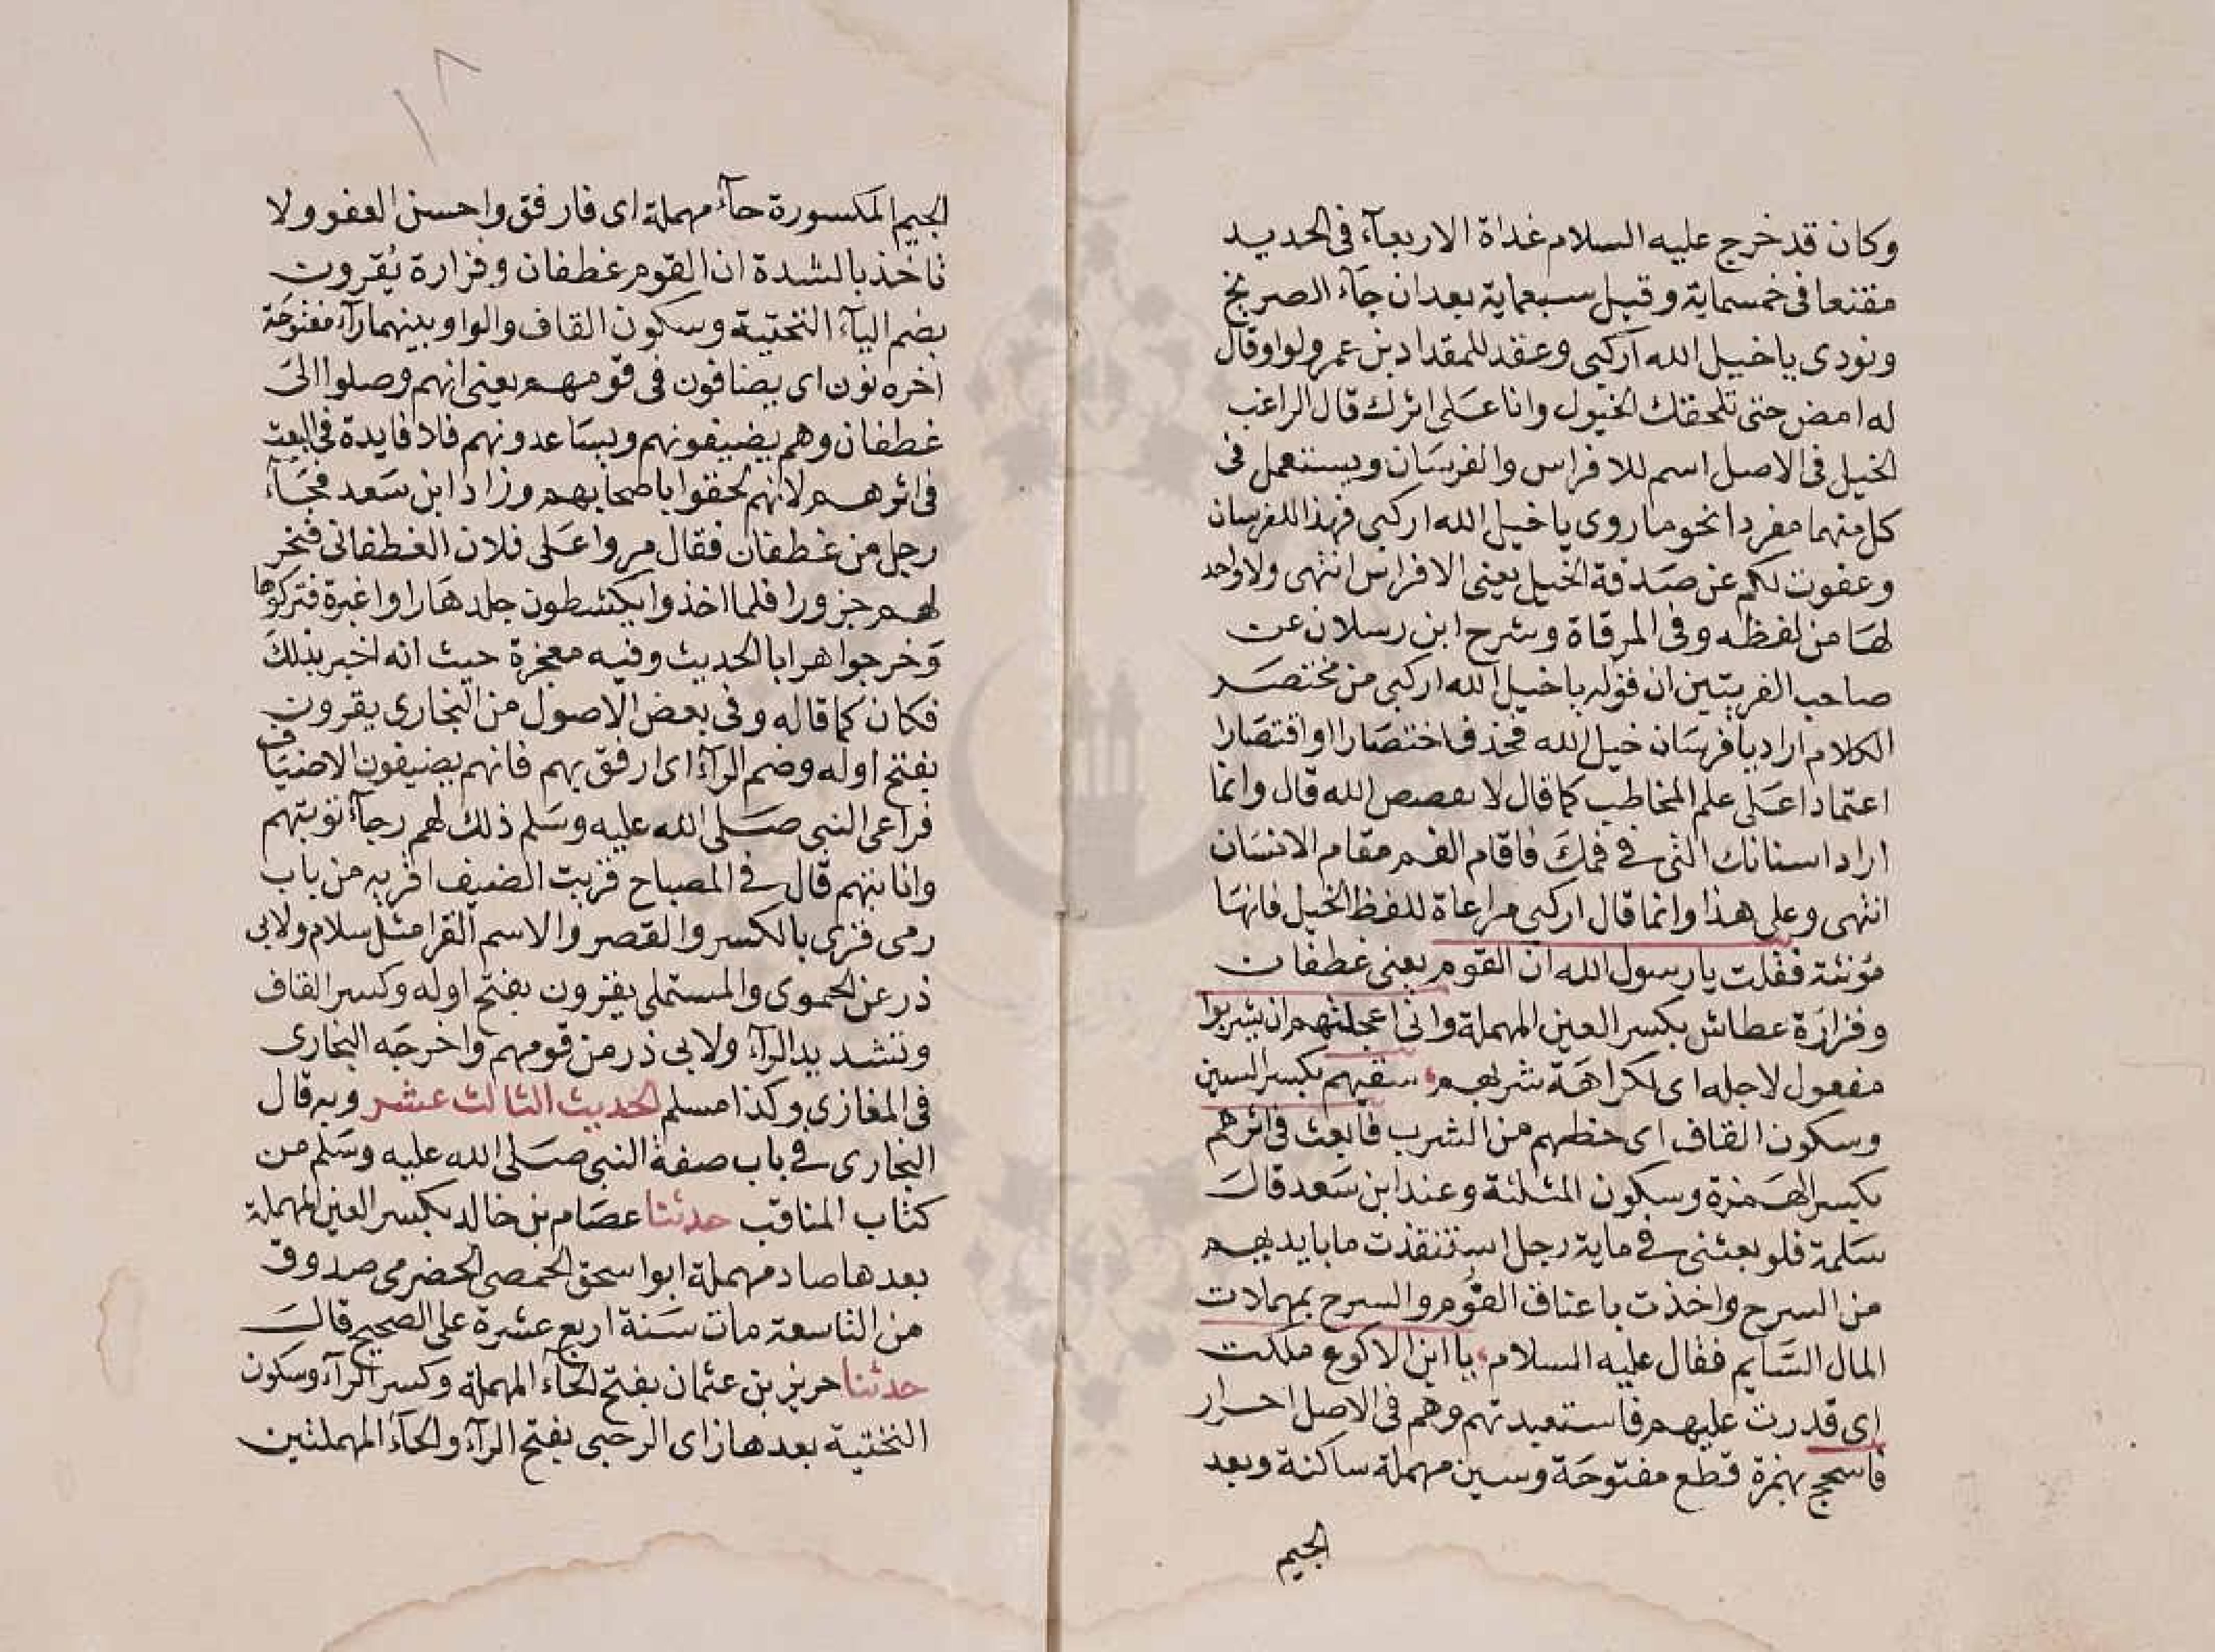 وكان قد خرج عليه السلام غداة الاربعاء في الحديد
مقنعا في خمسماية وقيل سبعماية بعد ان جاء الصريخ
ونودي يا خيل الله اركبي وعقد للمقداد بن عمرو لوا وقال
له امض حتى تلحقك الخيول وانا على اثرك قال الراغب
الخيل في الاصل اسم للافراس والفرسان ويستعمل في
كل منهما مفردا نحو ما روي يا خيل الله اركبي فهذا للفرسان
وعفوت لكم عن صدقة الخيل يعني الافراس انتهى ولا واحد
لها من لفظه وفي المرقاة وشرح ابن رسلان عن
صاحب الغريبين ان قوله يا خيل الله اركبي من مختصر
الكلام اراد يا فرسان خيل الله فحذف اختصارا او اقتصارا
اعتمادا على علم المخاطب كما قال لا يفضض الله قال وانما
اراد اسنانك التي في فمك فاقام الفم مقام الاسنان
انتهى وعلى هذا وانما قال اركبي مراعاة للفظ الخيل فانها
مؤنثة فقلت يا رسول الله ان القوم يعني غطفان
وفزارة عطاش بكسر العين المهملة واني اعجلتهم ان يشربوا
مفعول لاجله اي لكراهة شربهم سقيهم بكسر السين
وسكون القاف اي حظهم من الشرب فابعث في اثرهم
بكسر الهمزة وسكون المثلثة وعند ابن سعد قال
سلمة فلو بعثتني في ماية رجل استنقذت ما بايديهم
من السرح واخذت باعناق القوم والسرح بمهملات
المال السايم فقال عليه السلام يا ابن الاكوع ملكت
اي قدرت عليهم فاستعبدتهم وهم في الاصل احرار
فاسجح بهمزة قطع مفتوحة وسين مهملة ساكنة وبعد
الجيم
١٨
الجيم المكسورة حاء مهملة اي فارفق واحسن العفو ولا
تاخذ بالشدة ان القوم غطفان وفزارة يُقرون
بضم الياء التحتية وسكون القاف والواو بينهما راء مفتوحة
اخره نون اي يضافون في قومهم يعني انهم وصلوا الى
غطفان وهم يضيفونهم ويساعدونهم فلا فايدة في البعث
في اثرهم لانهم لحقوا باصحابهم وزاد ابن سعد فجاء
رجل من غطفان فقال مروا على فلان الغطفاني فنحر
لهم جزورا فلما اخذوا يكشطون جلدها راوا غبرة فتركوها
وخرجوا هرابا الحديث وفيه معجزة حيث انه اخبر بذلك
فكان كما قاله وفي بعض الاصول من البخاري يقرون
بفتح اوله وضم الراء اي ارفق بهم فانهم يضيفون الاضياف
فراعى النبي صلى الله عليه وسلم ذلك لهم رجاء توبتهم
وانابتهم قال في المصباح قريت الضيف اقريه من باب
رمى قرى بالكسر والقصر والاسم القرا مثل سلام ولابي
ذر عن الحموي والمستملي يقرون بفتح اوله وكسر القاف
وتشديد الراء ولابي ذر من قومهم واخرجه البخاري
في المغازي وكذا مسلم الحديث الثالث عشر وبه قال
البخاري في باب صفة النبي صلى الله عليه وسلم من
كتاب المناقب حدثنا عصام بن خالد بكسر العين المهملة
بعدها صاد مهملة ابو اسحق الحمصي الحضرمي صدوق
من التاسعة مات سنة اربع عشرة على الصحيح قال
حدثنا حريز بن عثمان بفتح الحاء المهملة وكسر الراء وسكون
التحتية بعدها زاي الرحبي بفتح الراء والحاء المهملتين